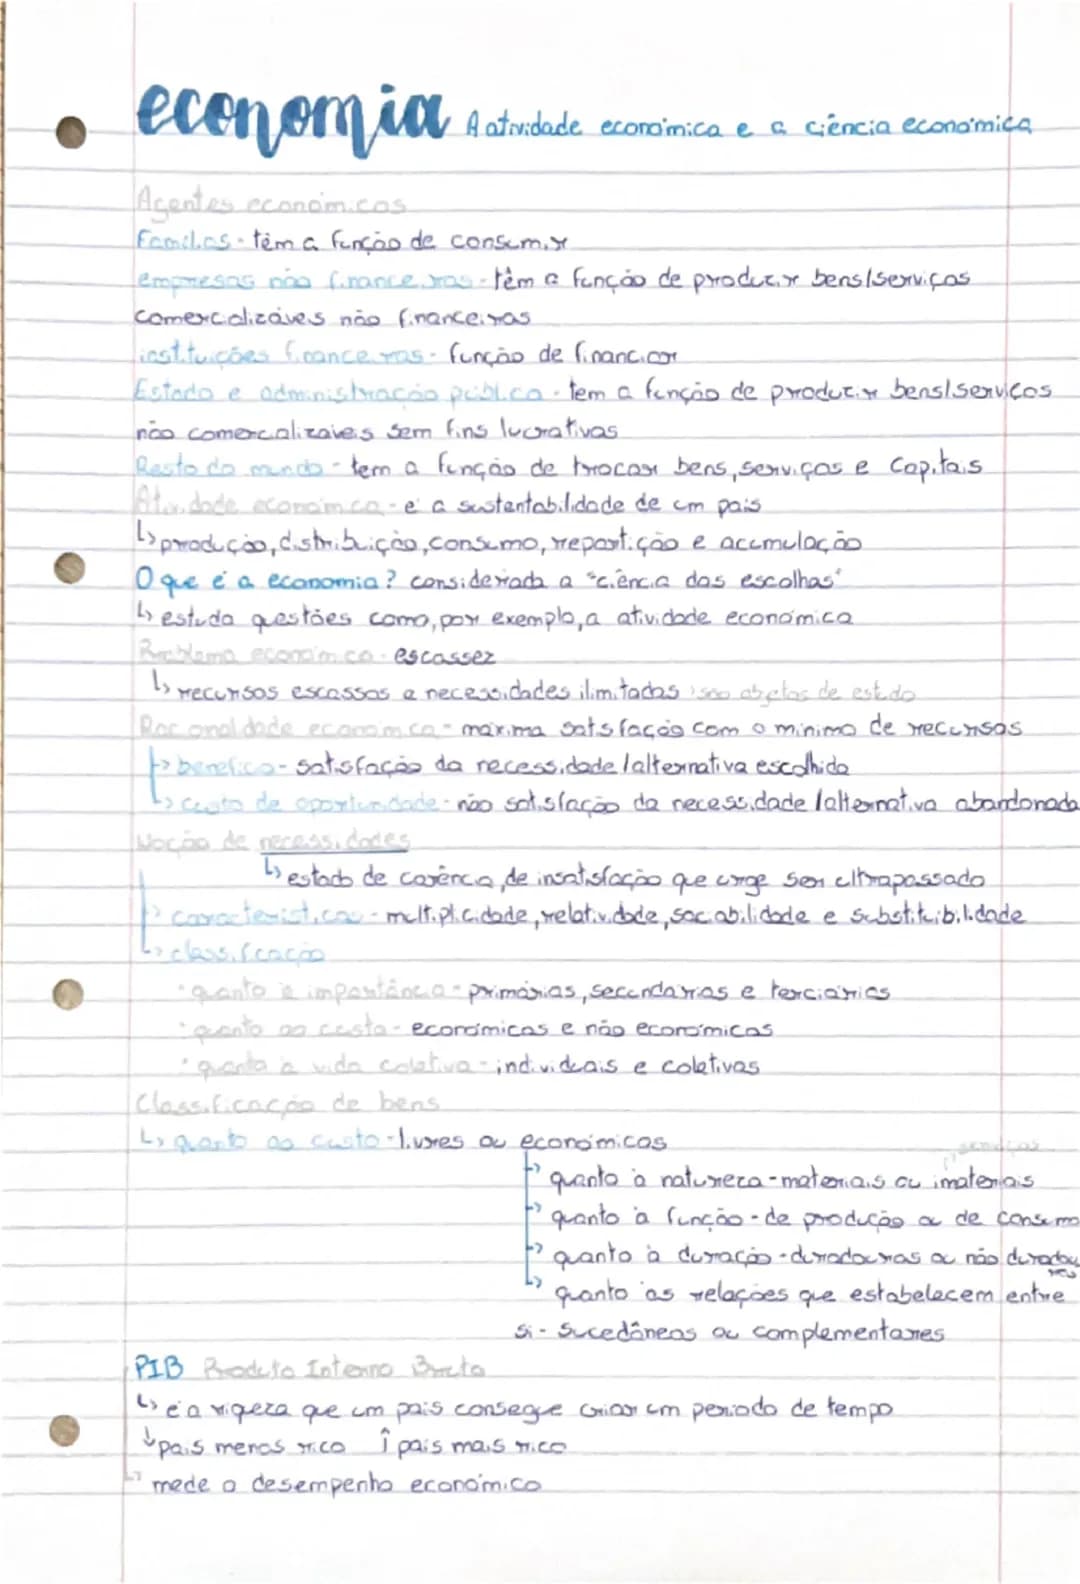 economia A atividade económica e a ciência económica
Agentes económicos
Famílias - têm a função de consumir
empresas não financeiras - têm a função de produzir bens/serviços
comercializáveis não financeiros
instituições financeiras - função de financiar
Estado e administração pública - tem a função de produzir bens/serviços
não comercalizaveis sem fins lucrativas
Resto do mundo - tem a função de trocar bens, serviços e Capitais
Atividade económica - é a sustentabilidade de um país
↳ produção, distribuição, consumo, repartição e acumulação
O que é a economia? considerada a "ciência das escolhas"
↳ estuda questões como, por exemplo, a atividade económica
Problema económico - escassez
↳ recursos escassos e necessidades ilimitadas são objetos de estudo
Racionalidade económica - máxima satisfação com o minimo de recursos
↳ benefício - satisfação da necessidade/alternativa escolhida
↳ custo de oportunidade - não satisfação da necessidade/alternativa abandonada
Noção de necessidades
↳ estado de carência, de insatisfação que urge ser ultrapassado
↳ características - multiplicidade, relatividade, saciabilidade e substituibilidade
↳ classificação
• quanto à importância - primárias, secundárias e terciárias
• quanto ao custo - económicas e não económicas
• quanto à vida coletiva - individuais e coletivas
Classificação de bens
↳ quanto ao custo - livres ou económicos
serviços
↳ quanto à natureza - materiais ou imateriais
↳ quanto à função - de produção ou de consumo
↳ quanto à duração - duradouras ou não duradouras
↳ quanto às relações que estabelecem entre
si - Sucedâneos ou complementares
PIB Produto Interno Bruto
↳ é a riqueza que um país consegue criar um período de tempo
↓ país menos rico ↑ país mais rico
↳ mede o desempenho económico